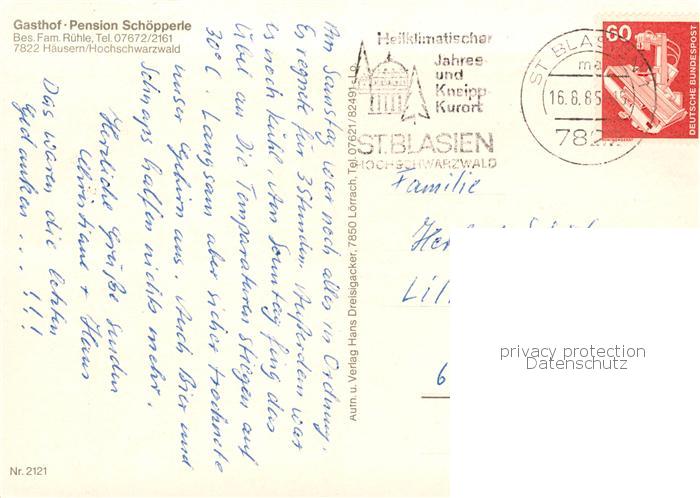 Gasthof · Pension Schöpperle
Bes. Fam. Rühle, Tel. 07672/2161
7822 Häusern/Hochschwarzwald
Am Samstag war noch alles in Ordnung.
Es regnete für 3 Stunden. Außerdem war
es noch kühl. Am Sonntag fing das
Übel an. Die Temperaturen stiegen auf
30°C. Langsam aber sicher trocknete
unser Gehirn aus. Auch Bier und
Schnaps halfen nichts mehr.
Herzliche Grüße senden
Christiane + Hans
Das waren die letzten
Gedanken ... !!!
Nr. 2121
Aufn. u. Verlag Hans Dreisigacker, 7850 Lörrach, Tel. 07621/82491 - Lö
Heilklimatischer
Jahres-
und
Kneipp-
Kurort
ST. BLASIEN
HOCHSCHWARZWALD
ST. BLASIEN 1
ma
16.8.85-15
7822
60
DEUTSCHE BUNDESPOST
Familie
6
privacy protection
Datenschutz